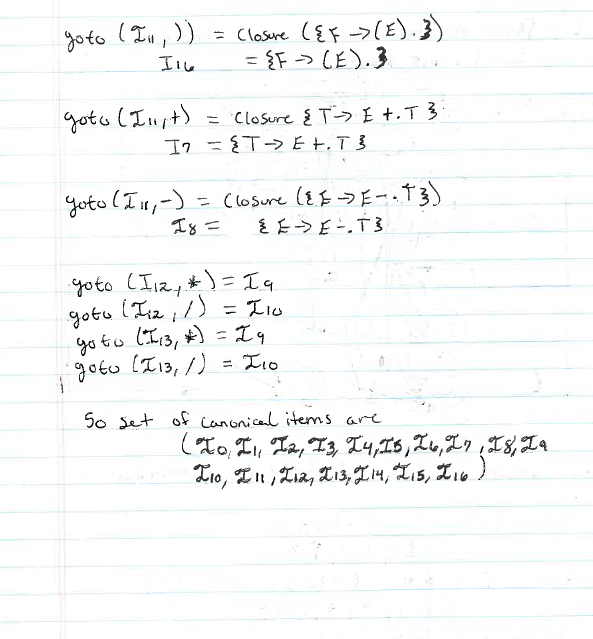 goto (I11, )) = Closure ({F -> (E).})
I16 = {F -> (E).}
goto (I11, +) = Closure {T -> E +.T}
I7 = {T -> E +.T}
goto (I11, -) = Closure ({E -> E-.T})
I8 = {E -> E-.T}
goto (I12, *) = I9
goto (I12, /) = I10
goto (I13, *) = I9
goto (I13, /) = I10
So set of canonical items are
(I0, I1, I2, I3, I4, I5, I6, I7, I8, I9
I10, I11, I12, I13, I14, I15, I16)